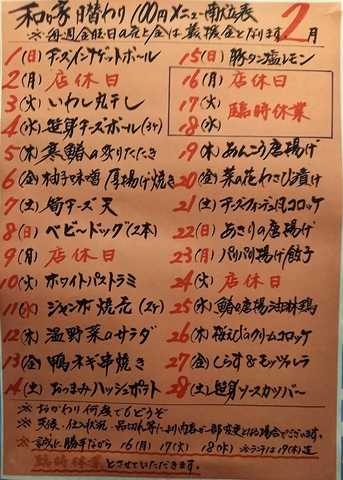 和が家 日替わり 100円メニュー献立表 2月
※毎週金曜日の
1(日)チーズインナゲットボール
2(月)店休日
3(火)いわし丸干し
4(水)笹身チーズボール(3ケ)
5(木)寒鰆の炙りたたき
6(金)柚子味噌厚揚げ焼き
7(土)筍チーズ天
8(日)ベビードッグ(2本)
9(月)店休日
10(火)ホワイトパストラミ
11(水)ジャンボ焼売(2ケ)
12(木)温野菜のサラダ
13(金)鴨ネギ串焼き
14(土)おつまみハッシュポテト
15(日)豚タン塩レモン
16(月)店休日
17(火)臨時休業
18(水)
19(木)あんこう唐揚げ
20(金)菜の花わさび漬け
21(土)チーズフォンデュ風コロッケ
22(日)あさりの唐揚げ
23(月)パリパリ揚げ餃子
24(火)店休日
25(水)鰆の唐揚油淋鶏
26(木)桜えびのクリームコロッケ
27(金)しらす&モッツァレラ
28(土)笹身ソースカツバー
※おかわり何度でもどうぞ
※天候・仕入状況・品切れ等により内容が一部変更となる場合がございます。
※誠に勝手ながら 16(月) 17(火) 18(水) ※ランチは19(木)迄
臨時休業とさせていただきます。